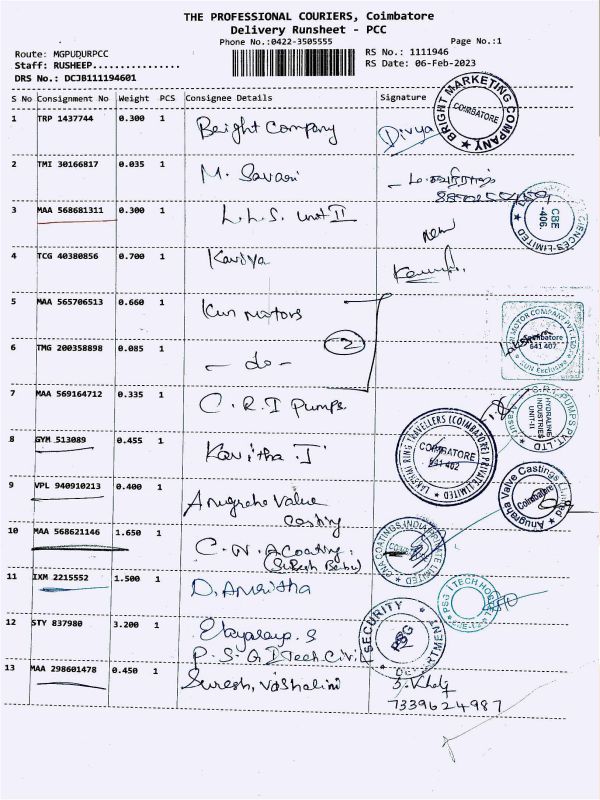 THE PROFESSIONAL COURIERS, Coimbatore
Delivery Runsheet - PCC
Phone No.:0422-3505555 Page No.:1
Route: MGPUDURPCC RS No.: 1111946
Staff: RUSHEEP................ RS Date: 06-Feb-2023
DRS No.: DCJB111194601
S No Consignment No Weight PCS Consignee Details Signature
BRIGHT MARKETING COMPANY COIMBATORE
1 TRP 1437744 0.300 1 Beight Company Divya
2 TMI 30166817 0.035 1 M. Savari
3 MAA 568681311 0.300 1 L.L.S. unit II
CBE -406. LIMITED
4 TCG 40380856 0.700 1 Kaviya
5 MAA 565706513 0.660 1 Kun Motors
MOTOR COMPANY PVT LTD Coimbatore 641 407 SUN Exclusive
6 TMG 200358898 0.085 1 - do - 2
7 MAA 569164712 0.335 1 C.R.I Pumps
C.R.I. PUMPS PVT. LTD HYDRAULING INDUSTRIES UNIT-II
8 GYM 513089 0.455 1 Kavitha .J
LAKSHMI RING TRAVELLERS (COIMBATORE) PRIVATE LIMITED COIMBATORE 641 402
9 VPL 940910213 0.400 1 Anugraha Value
casting
Anugraha Valve Castings Limited Coimbatore
10 MAA 568621146 1.650 1 C.N.A Coating.
(Suresh Babu)
COATINGS INDIA PRIVATE LIMITED
11 IXM 2215552 1.500 1 D. Amritha
PSG I TECH HOSTEL
12 STY 837980 3.200 1
P.S.G ITech Civil
SECURITY DEPARTMENT PSG
13 MAA 298601478 0.450 1 Suresh, Vashalini
7339624987